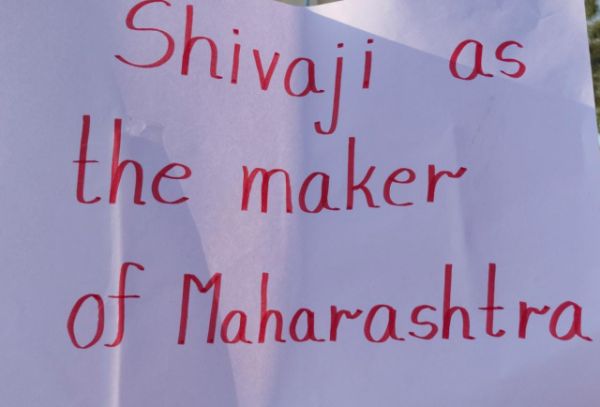 Shivaji as
the maker
of Maharashtra